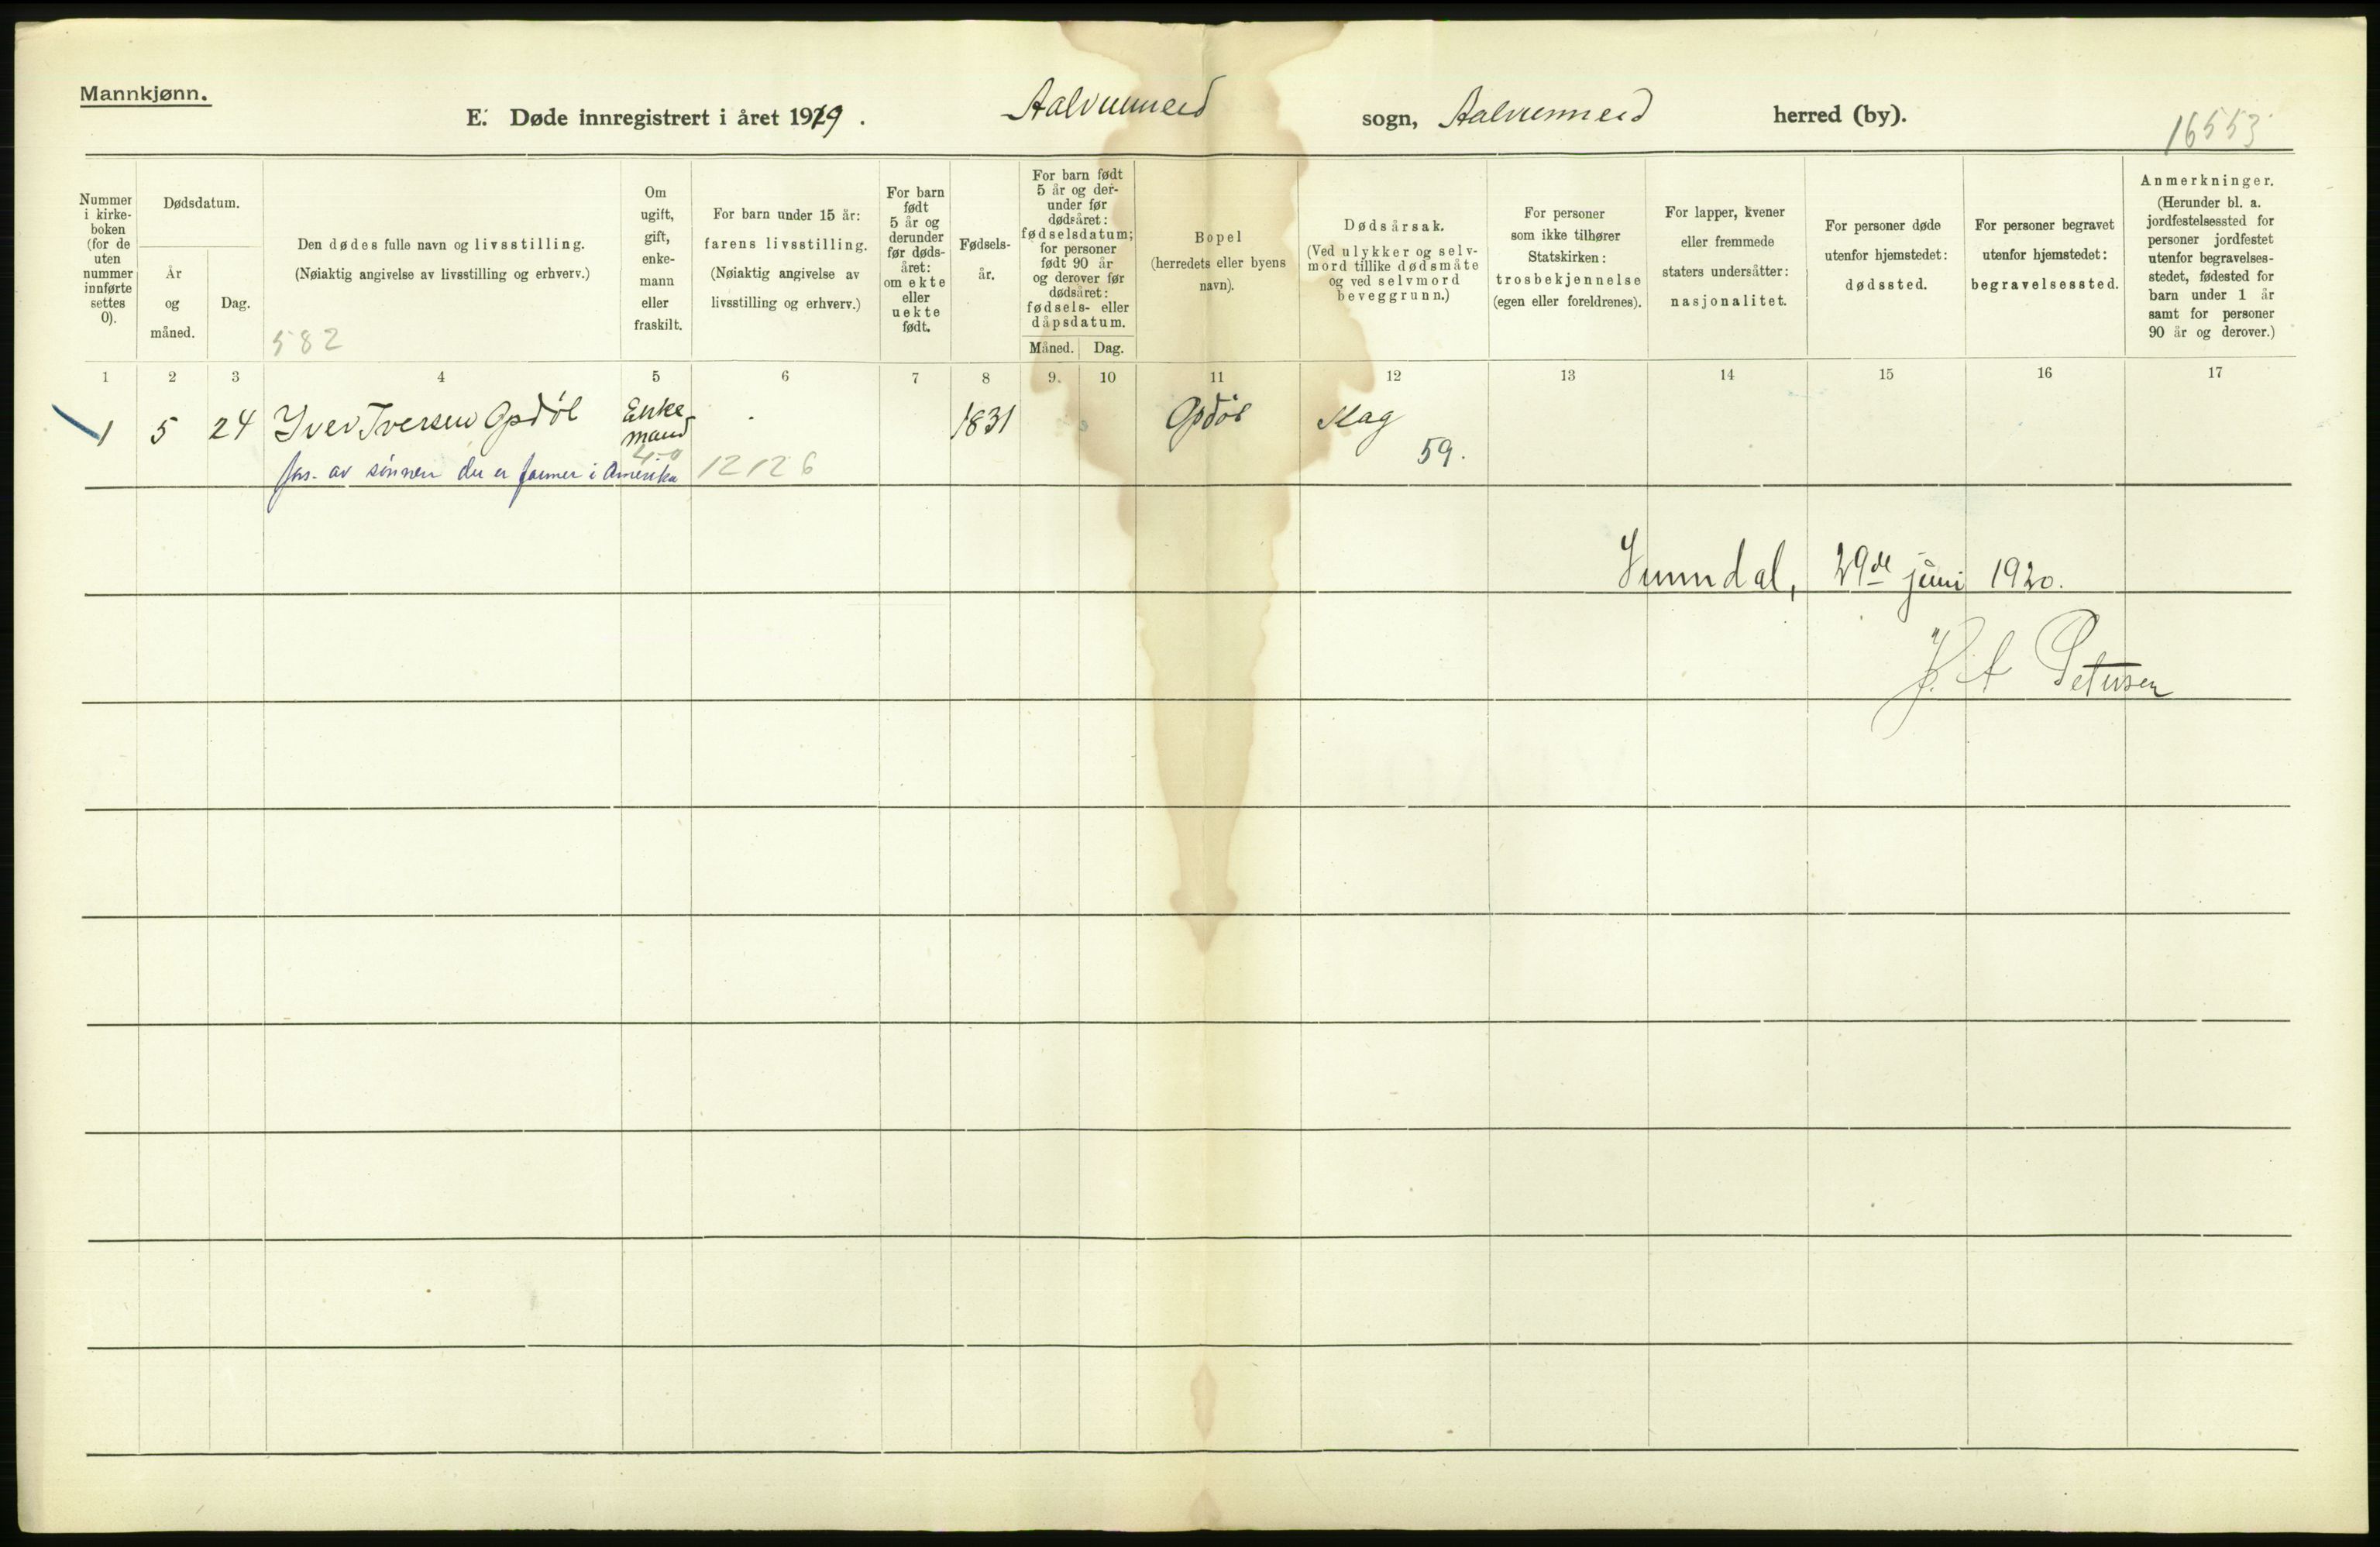 Mannkjønn.
E. Døde innregistrert i året 1919. Aalvundeid sogn, Aalvundeid herred (by).
16553
Nummer i kirke-boken (for de uten nummer innførte settes 0).
Dødsdatum.
År og måned.
Dag.
Den dødes fulle navn og livsstilling.
(Nøiaktig angivelse av livsstilling og erhverv.)
582
Om ugift, gift, enke-mann eller fraskilt.
For barn under 15 år: farens livsstilling.
(Nøiaktig angivelse av livsstilling og erhverv.)
For barn født 5 år og derunder før døds-året: om ekte eller uekte født.
Fødsels-år.
For barn født 5 år og der-under før dødsåret: fødselsdatum; for personer født 90 år og derover før dødsåret: fødsels- eller dåpsdatum.
Måned. Dag.
Bopel
(herredets eller byens navn).
Dødsårsak.
(Ved ulykker og selv-mord tillike dødsmåte og ved selvmord beveggrunn.)
For personer som ikke tilhører Statskirken: trosbekjennelse (egen eller foreldrenes).
For lapper, kvener eller fremmede staters undersåtter: nasjonalitet.
For personer døde utenfor hjemstedet: dødssted.
For personer begravet utenfor hjemstedet: begravelsessted.
Anmerkninger.
(Herunder bl. a. jordfestelsessted for personer jordfestet utenfor begravelses-stedet, fødested for barn under 1 år samt for personer 90 år og derover.)
1 2 3 4 5 6 7 8 9 10 11 12 13 14 15 16 17
1 5 24 Iver Iversen Opdøl Enke mand 1831 Opdøl Slag
59.
fors. av sønnen der er farmer i Amerika 12126
Sunndal, 29de juni 1920.
Petersen